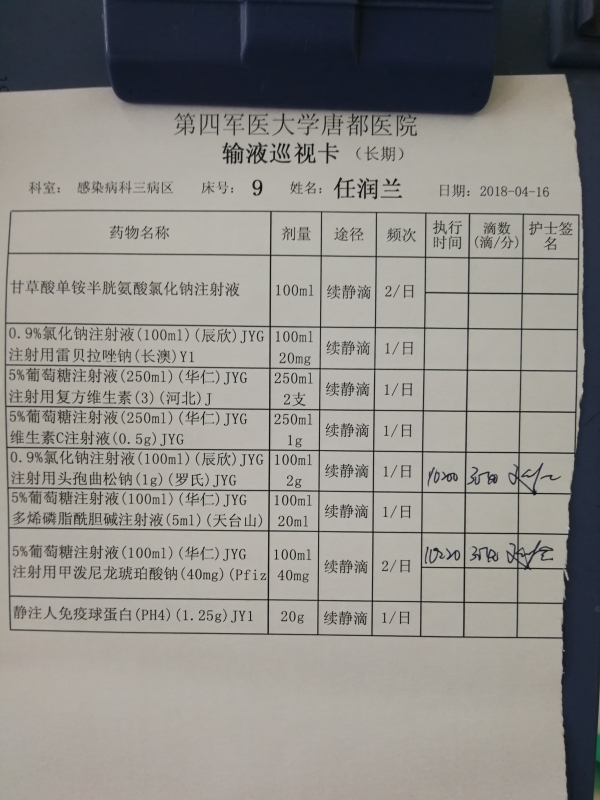 第四军医大学唐都医院
输液巡视卡（长期）
科室： 感染病科三病区 床号： 9 姓名： 任润兰 日期：2018-04-16
药物名称 剂量 途径 频次 执行时间 滴数(滴/分) 护士签名
甘草酸单铵半胱氨酸氯化钠注射液 100ml 续静滴 2/日
0.9%氯化钠注射液(100ml)(辰欣)JYG 100ml 续静滴 1/日
注射用雷贝拉唑钠(长澳)Y1 20mg
5%葡萄糖注射液(250ml)(华仁)JYG 250ml 续静滴 1/日
注射用复方维生素(3)(河北)J 2支
5%葡萄糖注射液(250ml)(华仁)JYG 250ml 续静滴 1/日
维生素C注射液(0.5g)JYG 1g
0.9%氯化钠注射液(100ml)(辰欣)JYG 100ml 续静滴 1/日
注射用头孢曲松钠(1g)(罗氏)JYG 2g
5%葡萄糖注射液(100ml)(华仁)JYG 100ml 续静滴 1/日
多烯磷脂酰胆碱注射液(5ml)(天台山) 20ml
5%葡萄糖注射液(100ml)(华仁)JYG 100ml 续静滴 2/日
注射用甲泼尼龙琥珀酸钠(40mg)(Pfiz 40mg
静注人免疫球蛋白(PH4)(1.25g)JY1 20g 续静滴 1/日